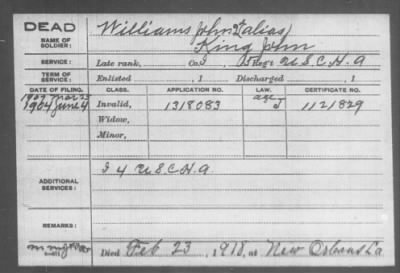 DEAD
NAME OF SOLDIER: Williams John (alias)
King John
SERVICE: Late rank, Co. I, 5 Reg't U S C H A
TERM OF SERVICE: Enlisted , 1 Discharged , 1
DATE OF FILING. CLASS. APPLICATION NO. LAW. CERTIFICATE NO.
1907 Mar 25 age
1904 June 4 Invalid, 1318083 J 1121829
Widow,
Minor,
ADDITIONAL SERVICES: I 4 U S C H A
REMARKS:
Died Feb 23, 1918, at New Orleans La